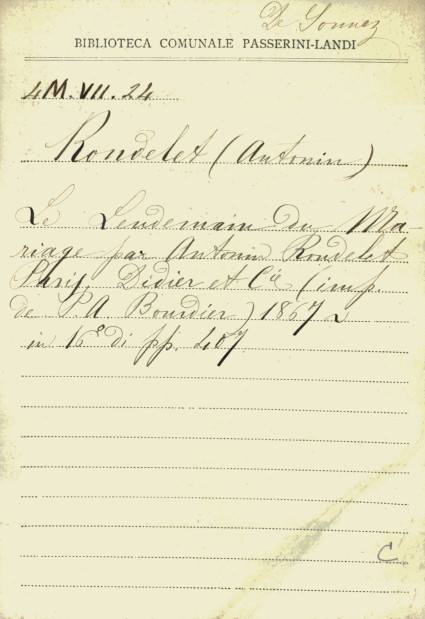 De Sonnaz
BIBLIOTECA COMUNALE PASSERINI-LANDI
4M.VII.24
Rondelet (Antonin)
Le Lendemain du Ma-
riage par Antonin Rondelet
Paris, Didier et Cie (imp.
de P. A Bourdier) 1867
in 16° di pp. 407
C